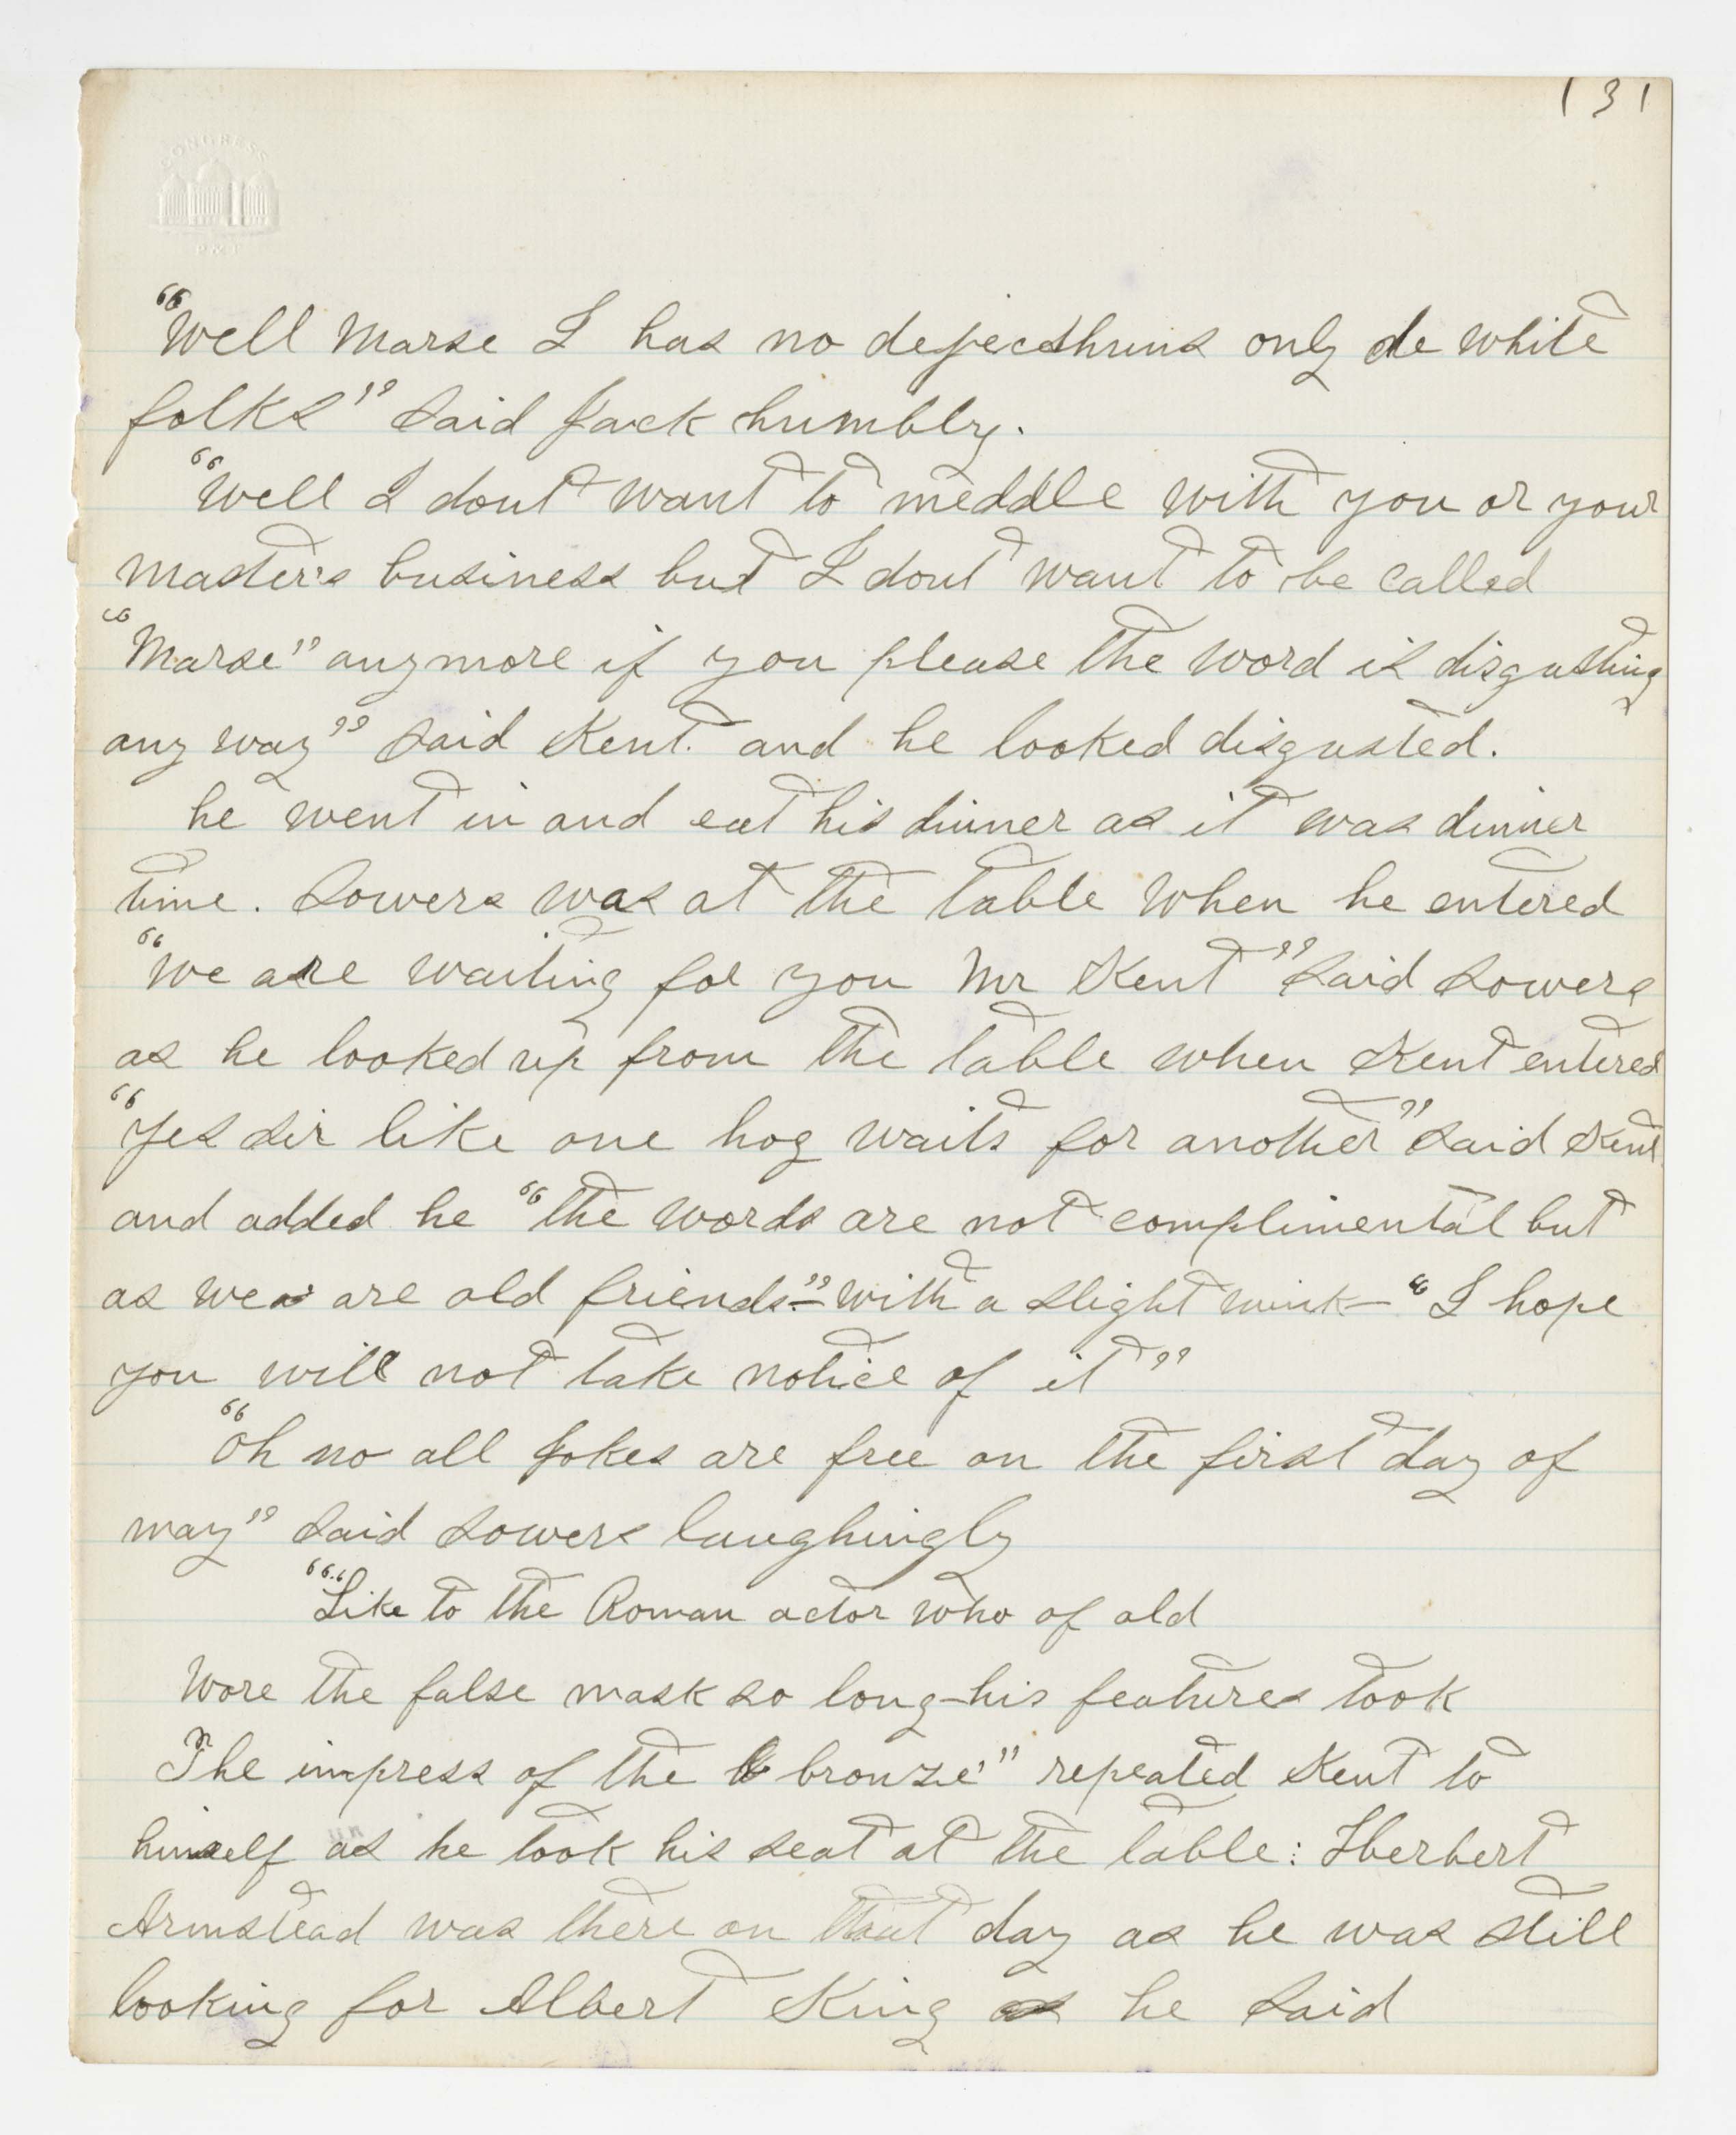 131
CONGRESS
P & P
"Well Marse I has no dejecthuns only de white
folks" said Jack humbly.
"Well I dont want to meddle with you or your
master's business but I dont want to be called
"Marse" anymore if you please the word is disgusting
any way" said Kent. and he looked disgusted.
he went in and eat his dinner as it was dinner
time. Sowers was at the table when he entered
"We are waiting for you Mr Kent" said Sowers
as he looked up from the table when Kent entered
"Yes sir like one hog waits for another" said Kent
and added he "the words are not complimental but
as we are old friends"—with a slight wink—"I hope
you will not take notice of it"
"Oh no all jokes are free on the first day of
may" said Sowers laughingly
"'Like to the Roman actor who of old
Wore the false mask so long—his features took
The impress of the bronze'" repeated Kent to
himself as he took his seat at the table: Herbert
Armstead was there on that day as he was still
looking for Albert King as he said